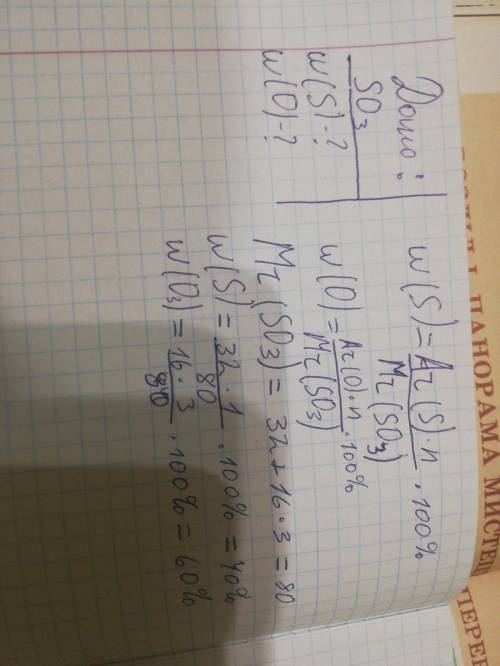 Дано:
SO₃
w(S)-?
w(O)-?
w(S) = Ar(S)·n / Mr(SO₃) · 100%
w(O) = Ar(O)·n / Mr(SO₃) · 100%
Mr(SO₃) = 32 + 16·3 = 80
w(S) = 32·1 / 80 · 100% = 40%
w(O₃) = 16·3 / 80 · 100% = 60%
ПАНОРАМА